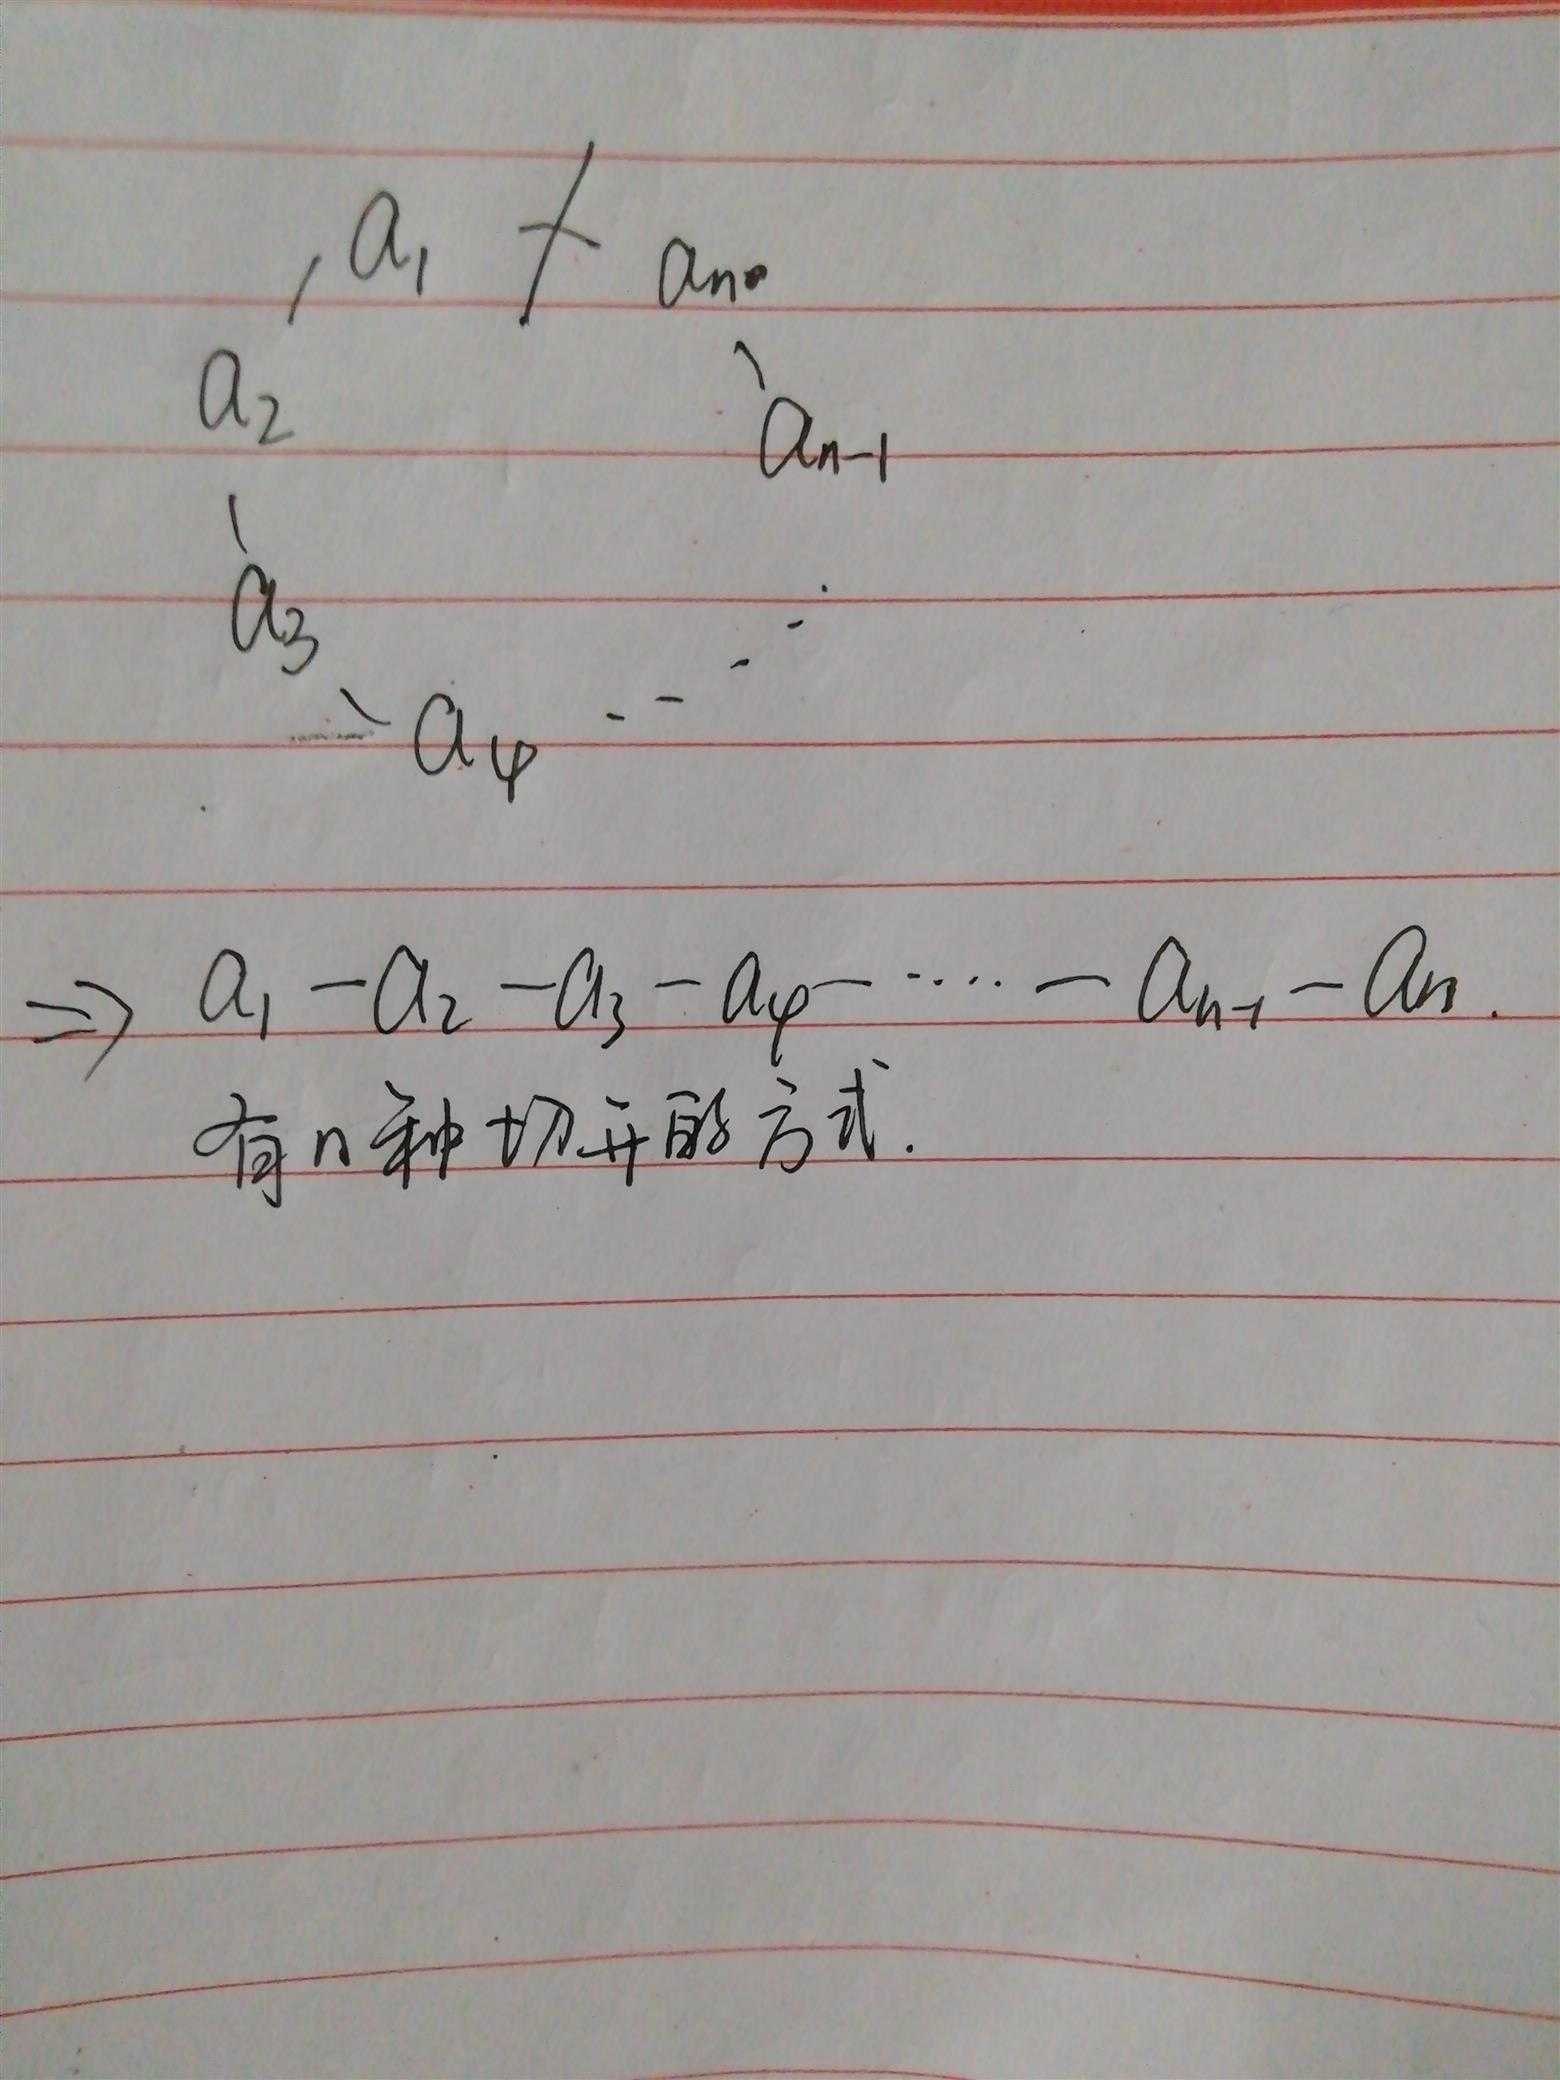 a₁ ⁄ aₙ
a₂ aₙ₋₁
a₃
a₄ - - - - ·
⇒ a₁ — a₂ — a₃ — a₄ — ····· — aₙ₋₁ — aₙ.
有n种切开的方式.